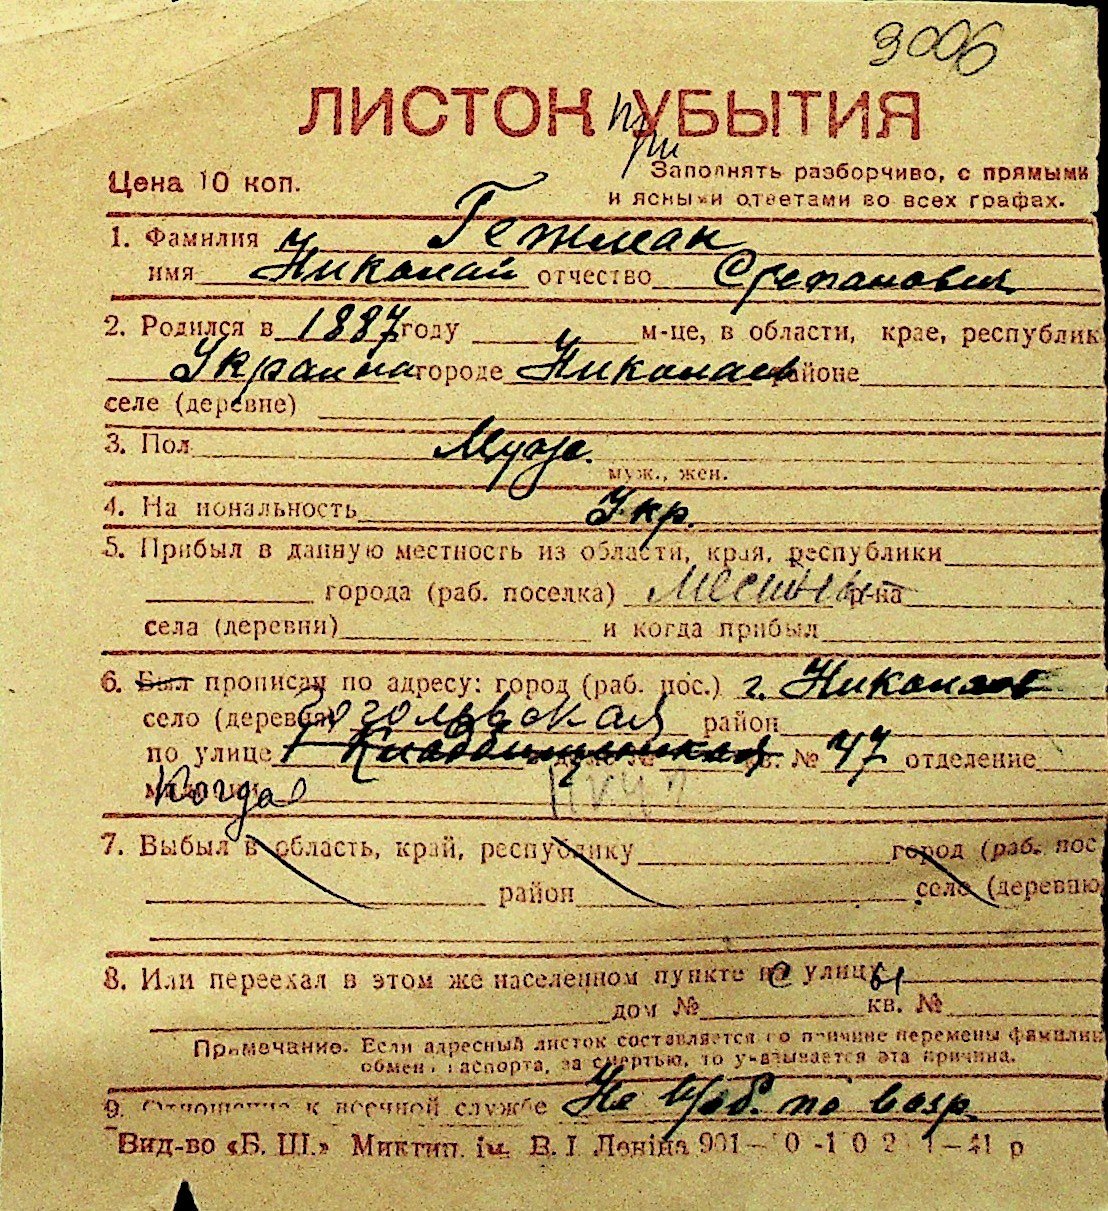 9006
ЛИСТОК УБЫТИЯ
при
Цена 10 коп.
Заполнять разборчиво, с прямыми
и ясными ответами во всех графах.
1. Фамилия Гетман
имя Николай отчество Степанович
2. Родился в 1887 году м-це, в области, крае, республик
Украина городе Николаев районе
селе (деревне)
3. Пол Муж.
муж., жен.
4. Национальность Укр.
5. Прибыл в данную местность из области, края, республики
города (раб. поселка) местный р-на
села (деревни) и когда прибыл
6. Был прописан по адресу: город (раб. пос.) г. Николаев
село (деревня) Гогольвская район
по улице 1 Кладбищенская кв. № 47 отделение
Когда
7. Выбыл в область, край, республику город (раб. пос
район село (деревню
8. Или переехал в этом же населенном пункте с улицы
дом № кв. №
Примечание. Если адресный листок составляется по причине перемены фамилии
обмена паспорта, за смертью, то указывается эта причина.
9. Отношение к военной службе Не Моб. по возр.
Вид-во «Б. Ш.» Миктип. ім. В. І Леніна